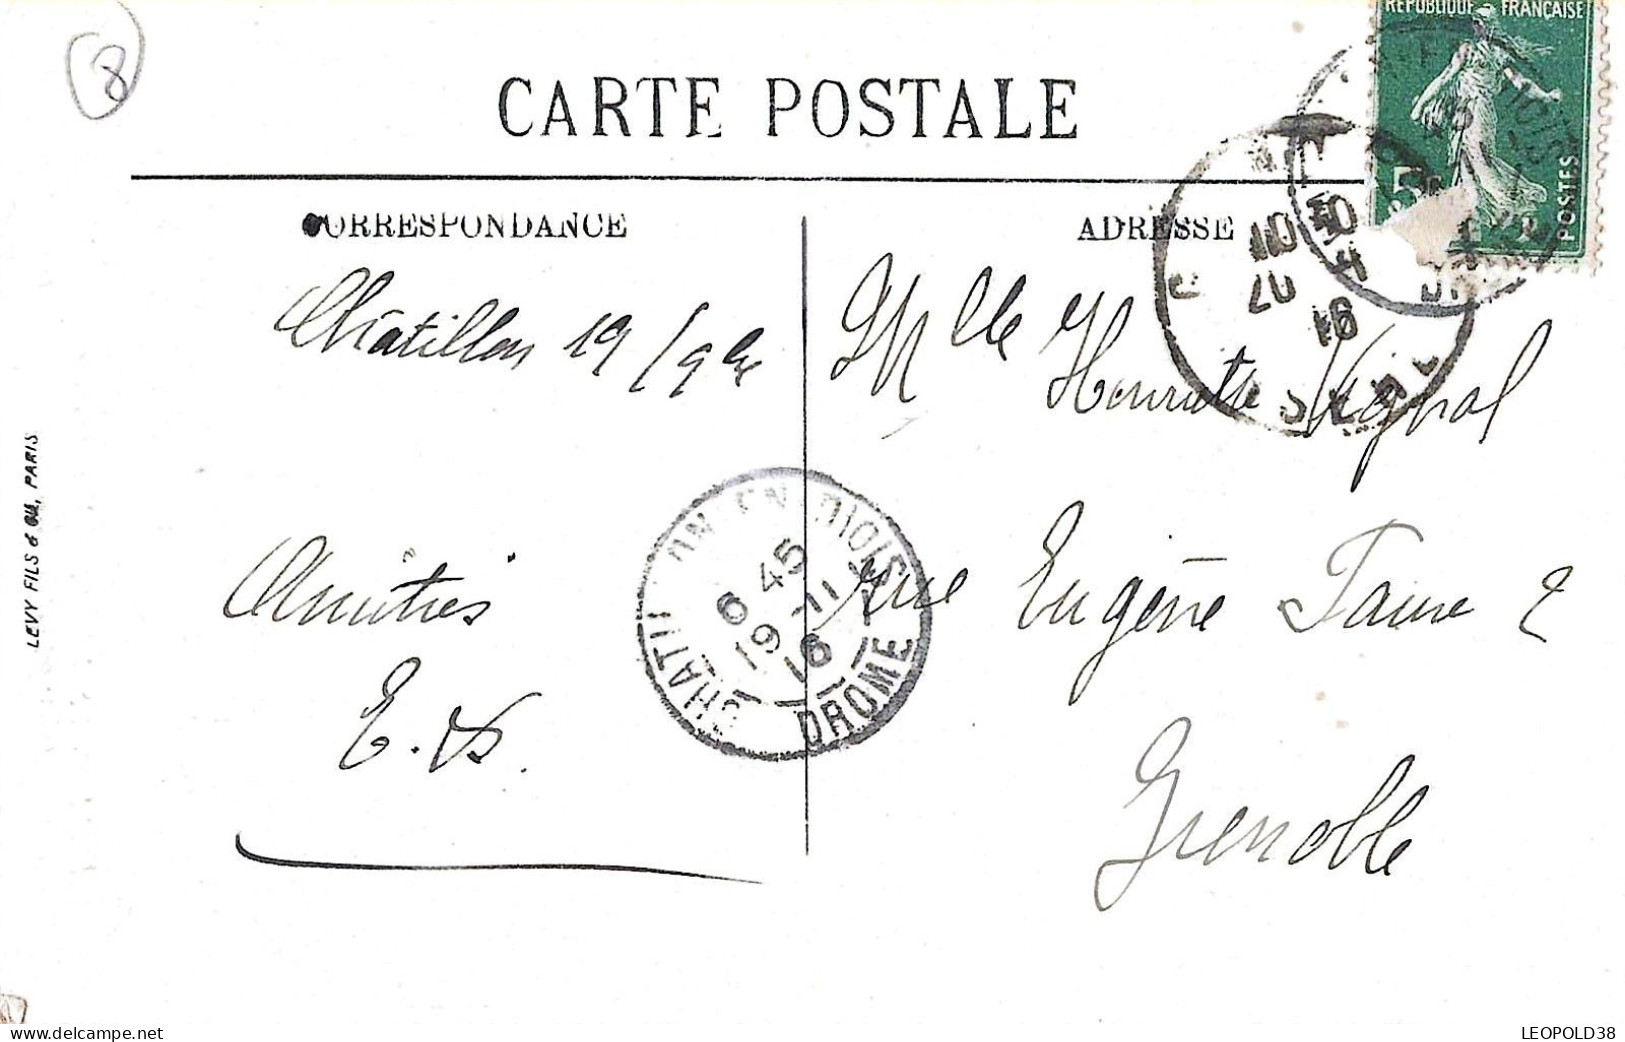 8
CARTE POSTALE
CORRESPONDANCE
ADRESSE
RÉPUBLIQUE FRANÇAISE
5
POSTES
Châtillon 19/9bre
Mlle Henriette Vignal
Amitiés
rue Eugène Faure 2
E.
Grenoble
CHATILLON EN DIOIS
6 45
19 -11
16
DROME
LEVY FILS & Cie, PARIS
www.delcampe.net
LEOPOLD38